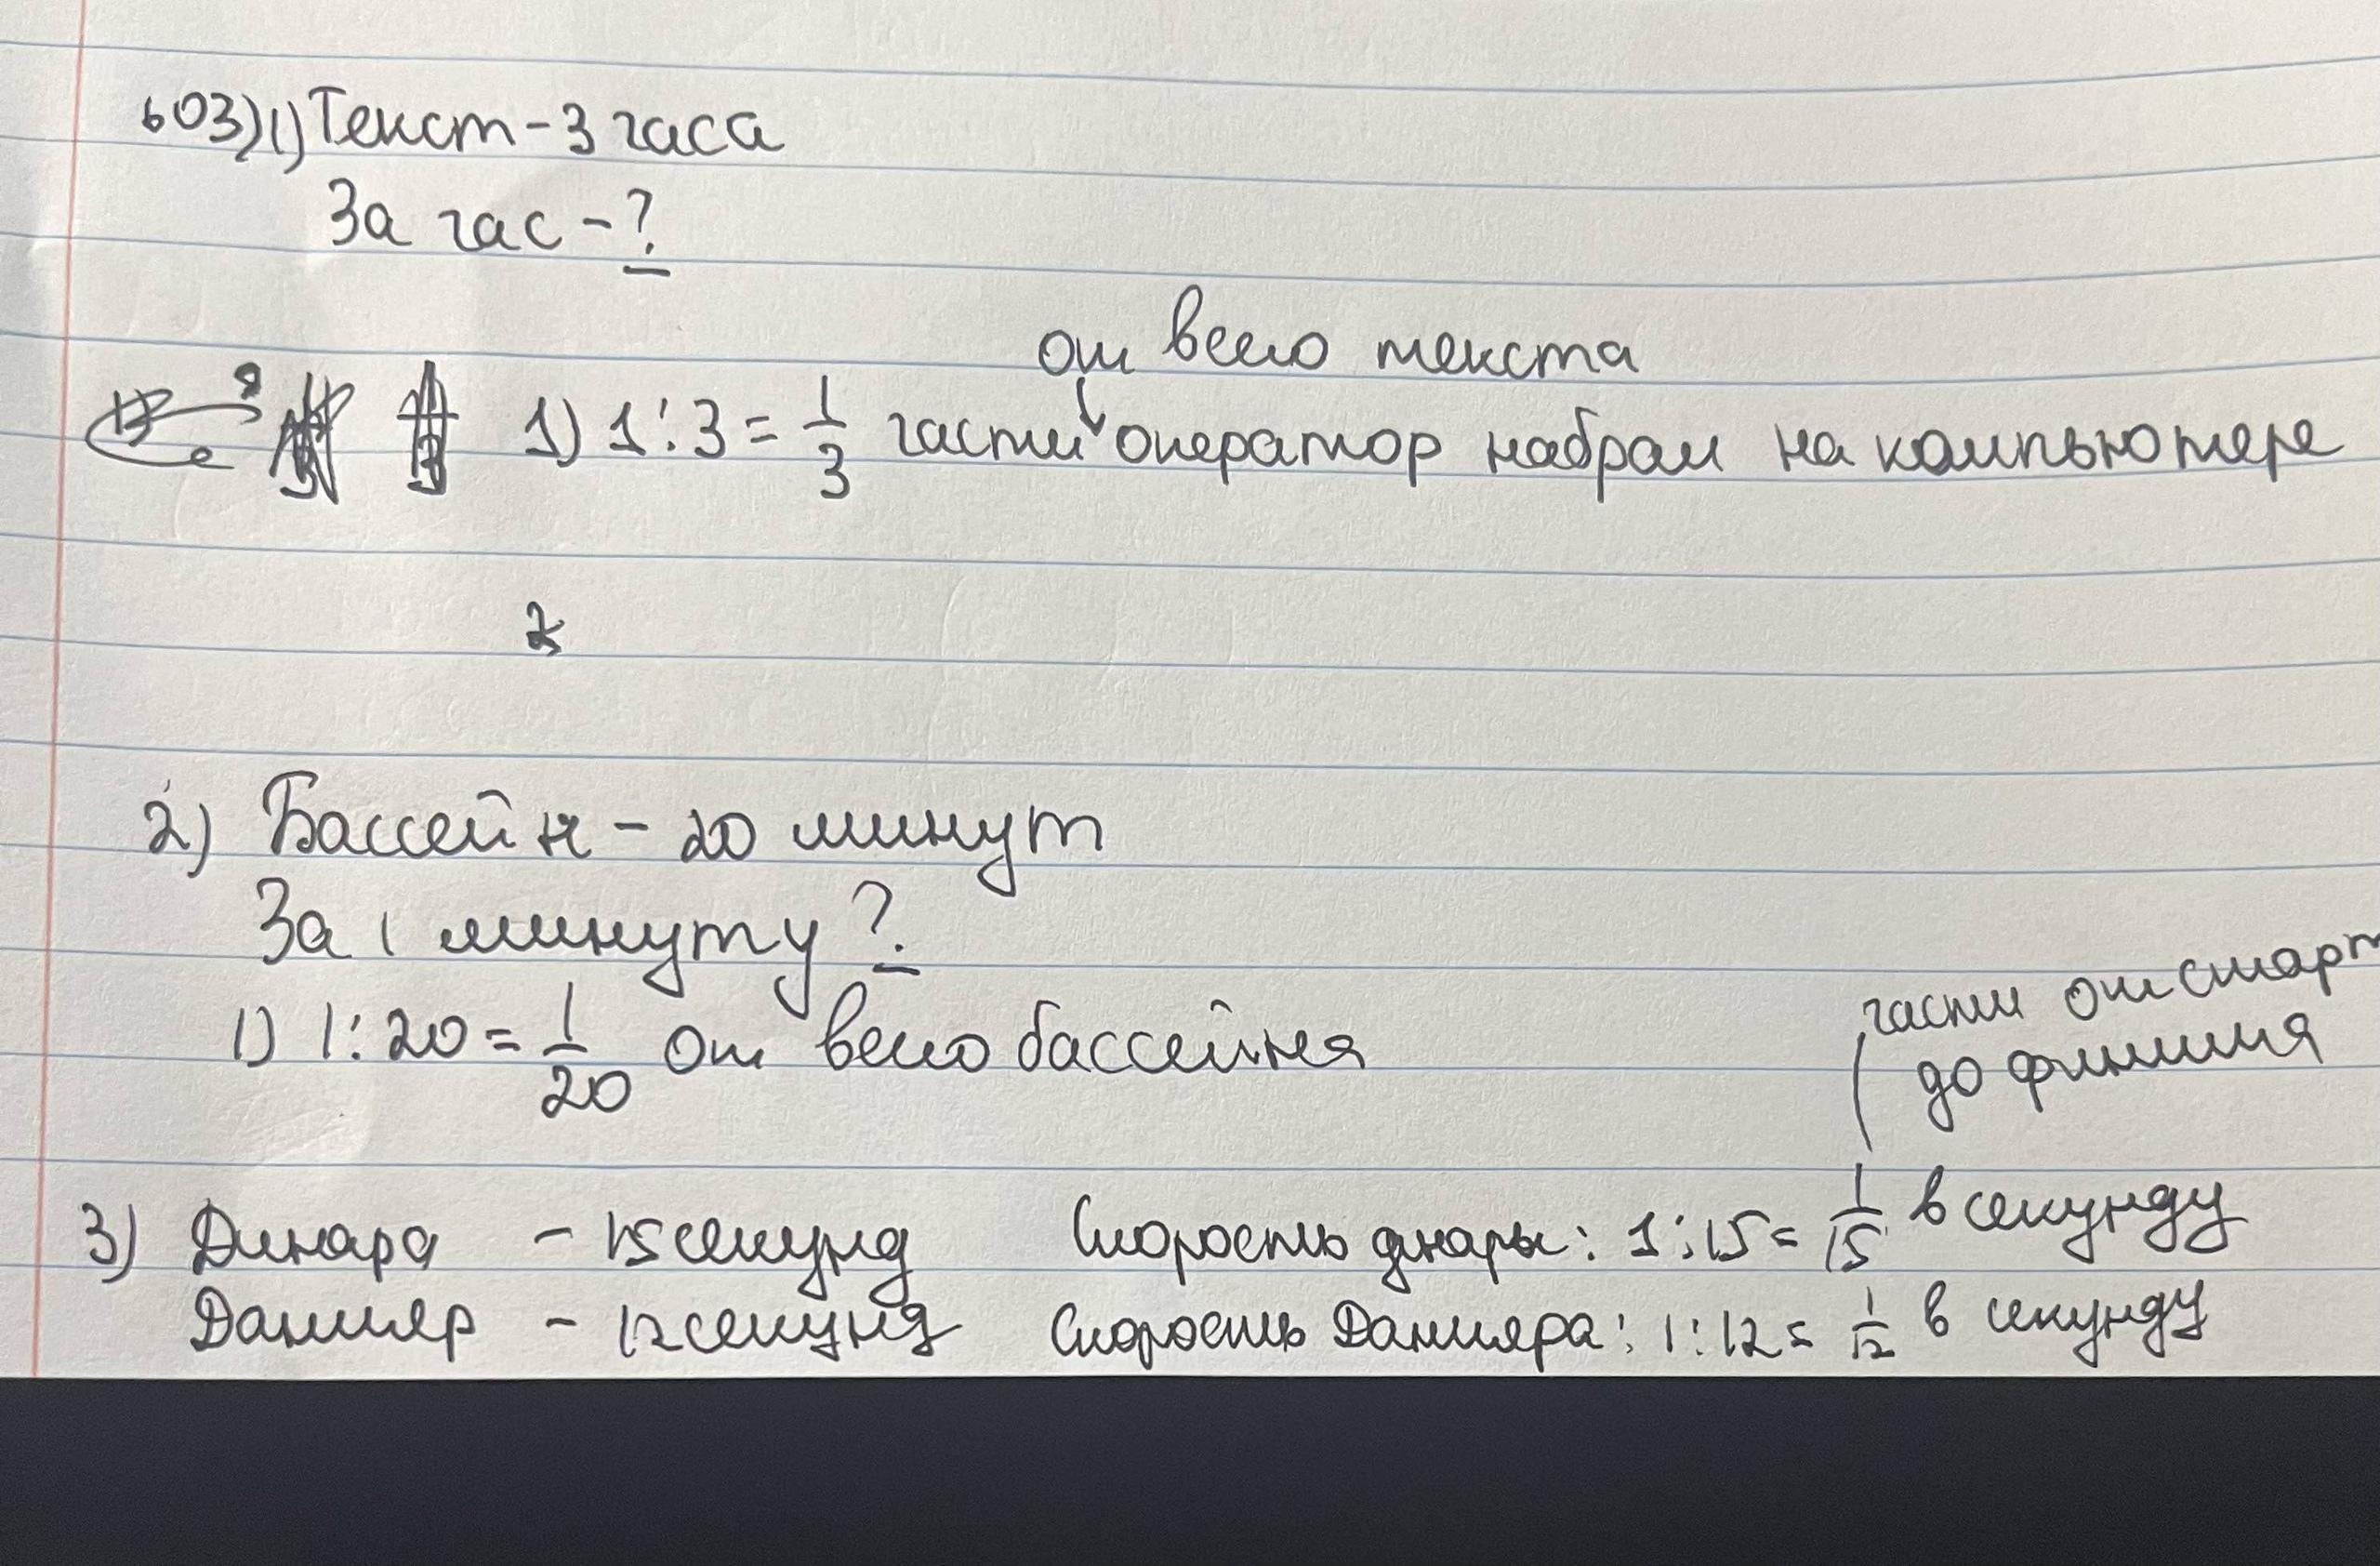 603) 1) Текст - 3 часа
За час - ?
от всего текста
1) 1 : 3 = 1/3 части оператор набрал на компьютере
2
2) Бассейн - 20 минут
За 1 минуту ?
1) 1 : 20 = 1/20 от всего бассейня
части от старт
до финиша
3) Динара - 15 секунд Скорость динары: 1 : 15 = 1/15 в секунду
Данияр - 12 секунд Скорость Данияра: 1 : 12 = 1/12 в секунду